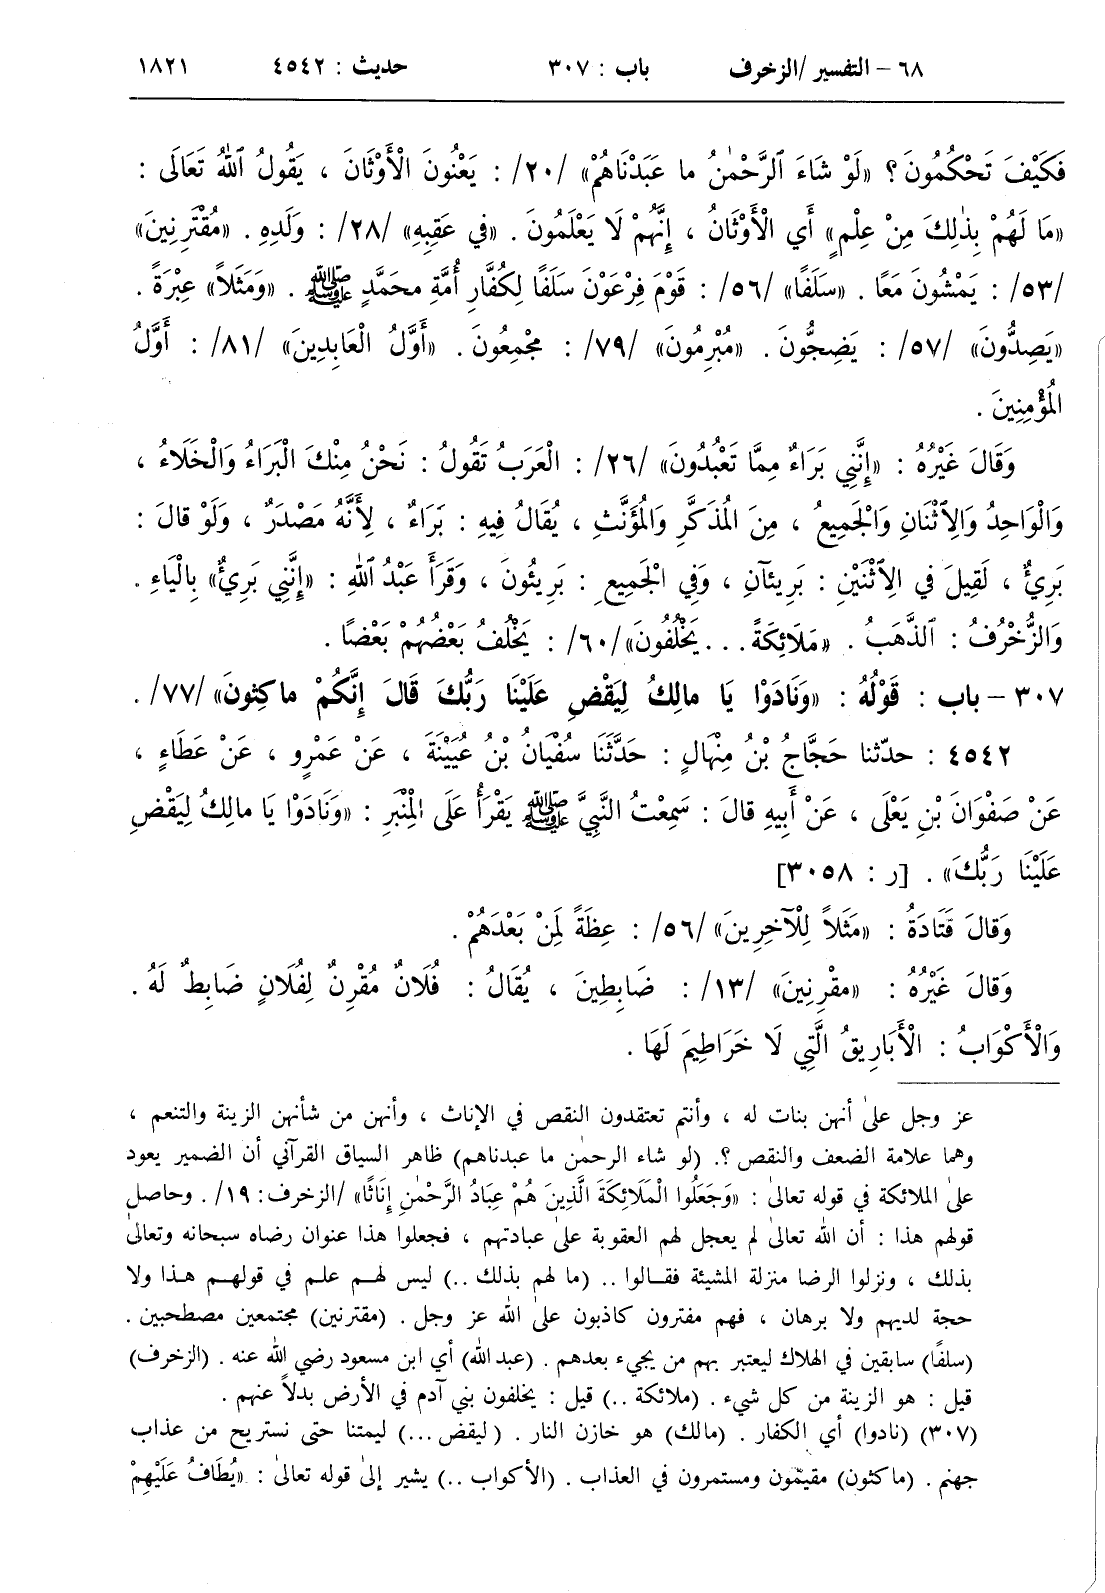 ٦٨ - التفسير /الزخرف باب : ٣٠٧ حديث : ٤٥٤٢ ١٨٢١
فَكَيْفَ تَحْكُمُونَ ؟ «لَوْ شَاءَ ٱلرَّحْمٰنُ ما عَبَدْنَاهُمْ» /٢٠/ : يَعْنُونَ الْأَوْثَانَ ، يَقُولُ ٱللهُ تَعَالَى :
«مَا لَهُمْ بِذٰلِكَ مِنْ عِلْمٍ» أَيِ الْأَوْثَانُ ، إِنَّهُمْ لَا يَعْلَمُونَ . «في عَقِبِهِ» /٢٨/ : وَلَدِهِ . «مُقْتَرِنِينَ»
/٥٣/ : يَمْشُونَ مَعًا . «سَلَفًا» /٥٦/ : قَوْمَ فِرْعَوْنَ سَلَفًا لِكُفَّارِ أُمَّةِ محَمَّدٍ ﷺ . «وَمَثَلاً» عِبْرَةً .
«يَصِدُّونَ» /٥٧/ : يَضِجُّونَ . «مُبْرِمُونَ» /٧٩/ : مجْمِعُونَ . «أَوَّلُ الْعَابِدِينَ» /٨١/ : أَوَّلُ
المُؤْمِنِينَ .
وَقَالَ غَيْرُهُ : «إِنَّنِي بَرَاءٌ مِمَّا تَعْبُدُونَ» /٢٦/ : الْعَرَبُ تَقُولُ : نَحْنُ مِنْكَ الْبَرَاءُ وَالْخَلَاءُ ،
وَالْوَاحِدُ وَالِٱثْنَانِ وَالْجَمِيعُ ، مِنَ المُذَكَّرِ وَالمُؤَنَّثِ ، يُقَالُ فِيهِ : بَرَاءٌ ، لِأَنَّهُ مَصْدَرٌ ، وَلَوْ قالَ :
بَرِيْءٌ ، لَقِيلَ في الِٱثْنَيْنِ : بَرِيئَآنِ ، وَفِي الْجَمِيعِ : بَرِيئُونَ ، وَقَرَأَ عَبْدُ ٱللهِ : «إِنَّنِي بَرِيْءٌ» بِالْيَاءِ .
وَالزُّخْرُفُ : ٱلذَّهَبُ . «مَلَائِكَةً . . . يَخْلُفُونَ»/٦٠/ : يَخْلُفُ بَعْضُهُمْ بَعْضًا .
٣٠٧ - باب : قَوْلُهُ : «وَنَادَوْا يَا مالِكُ لِيَقْضِ عَلَيْنَا رَبُّكَ قَالَ إِنَّكُمْ ماكِثونَ» /٧٧/ .
٤٥٤٢ : حدّثنا حَجَّاجُ بْنُ مِنْهَالٍ : حَدَّثَنَا سُفْيَانُ بْنُ عُيَيْنَةَ ، عَنْ عَمْرٍو ، عَنْ عَطَاءٍ ،
عَنْ صَفْوَانَ بْنِ يَعْلَى ، عَنْ أَبِيهِ قالَ : سَمِعْتُ النَّبِيَّ ﷺ يَقْرَأُ عَلَى الْمِنْبَرِ : «وَنَادَوْا يَا مالِكُ لِيَقْضِ
عَلَيْنَا رَبُّكَ» . [ر : ٣٠٥٨]
وَقالَ قَتَادَةُ : «مَثَلاً لِلْآخِرِينَ» /٥٦/ : عِظَةً لِمَنْ بَعْدَهُمْ .
وَقالَ غَيْرُهُ : «مقْرِنِينَ» /١٣/ : ضَابِطِينَ ، يُقَالُ : فُلَانٌ مُقْرِنٌ لِفُلَانٍ ضَابِطٌ لَهُ .
وَالْأَكْوَابُ : الْأَبَارِيقُ الَّتِي لَا خَرَاطِيمَ لَهَا .
عز وجل علىٰ أنهن بنات له ، وأنتم تعتقدون النقص في الإناث ، وأنهن من شأنهن الزينة والتنعم ،
وهما علامة الضعف والنقص ؟. (لو شاء الرحمٰن ما عبدناهم) ظاهر السياق القرآني أن الضمير يعود
علىٰ الملائكة في قوله تعالىٰ : «وَجَعَلُوا الْمَلَائِكَةَ الَّذِينَ هُمْ عِبَادُ الرَّحْمٰنِ إِنَاثًا» /الزخرف: ١٩/ . وحاصل
قولهم هذا : أن الله تعالىٰ لم يعجل لهم العقوبة علىٰ عبادتهم ، فجعلوا هذا عنوان رضاه سبحانه وتعالىٰ
بذلك ، ونزلوا الرضا منزلة المشيئة فقـالوا .. (ما لهم بذلك ..) ليس لهـم علم في قولهـم هـذا ولا
حجة لديهم ولا برهان ، فهم مفترون كاذبون علىٰ الله عز وجل . (مقترنين) مجتمعين مصطحبين .
(سلفًا) سابقين في الهلاك ليعتبر بهم من يجيء بعدهم . (عبد الله) أي ابن مسعود رضي الله عنه . (الزخرف)
قيل : هو الزينة من كل شيء . (ملائكة ..) قيل : يخلفون بني آدم في الأرض بدلاً عنهم .
(٣٠٧) (نادوا) أي الكفار . (مالك) هو خازن النار . (ليقض ...) ليمتنا حتى نستريح من عذاب
جهنم . (ماكثون) مقيمون ومستمرون في العذاب . (الأكواب ..) يشير إلىٰ قوله تعالىٰ : «يُطَافُ عَلَيْهِمْ